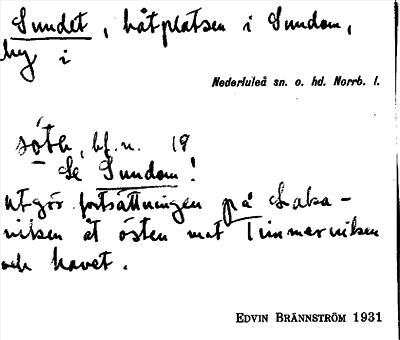 Sundet, båtplatsen i Sundom,
by i
Nederluleå sn. o. hd. Norrb. l.
bf. n. 19
Se Sundom!
utgör fortsättningen på Laxa-
viken åt östen mot Timmerviken
och havet.
EDVIN BRÄNNSTRÖM 1931